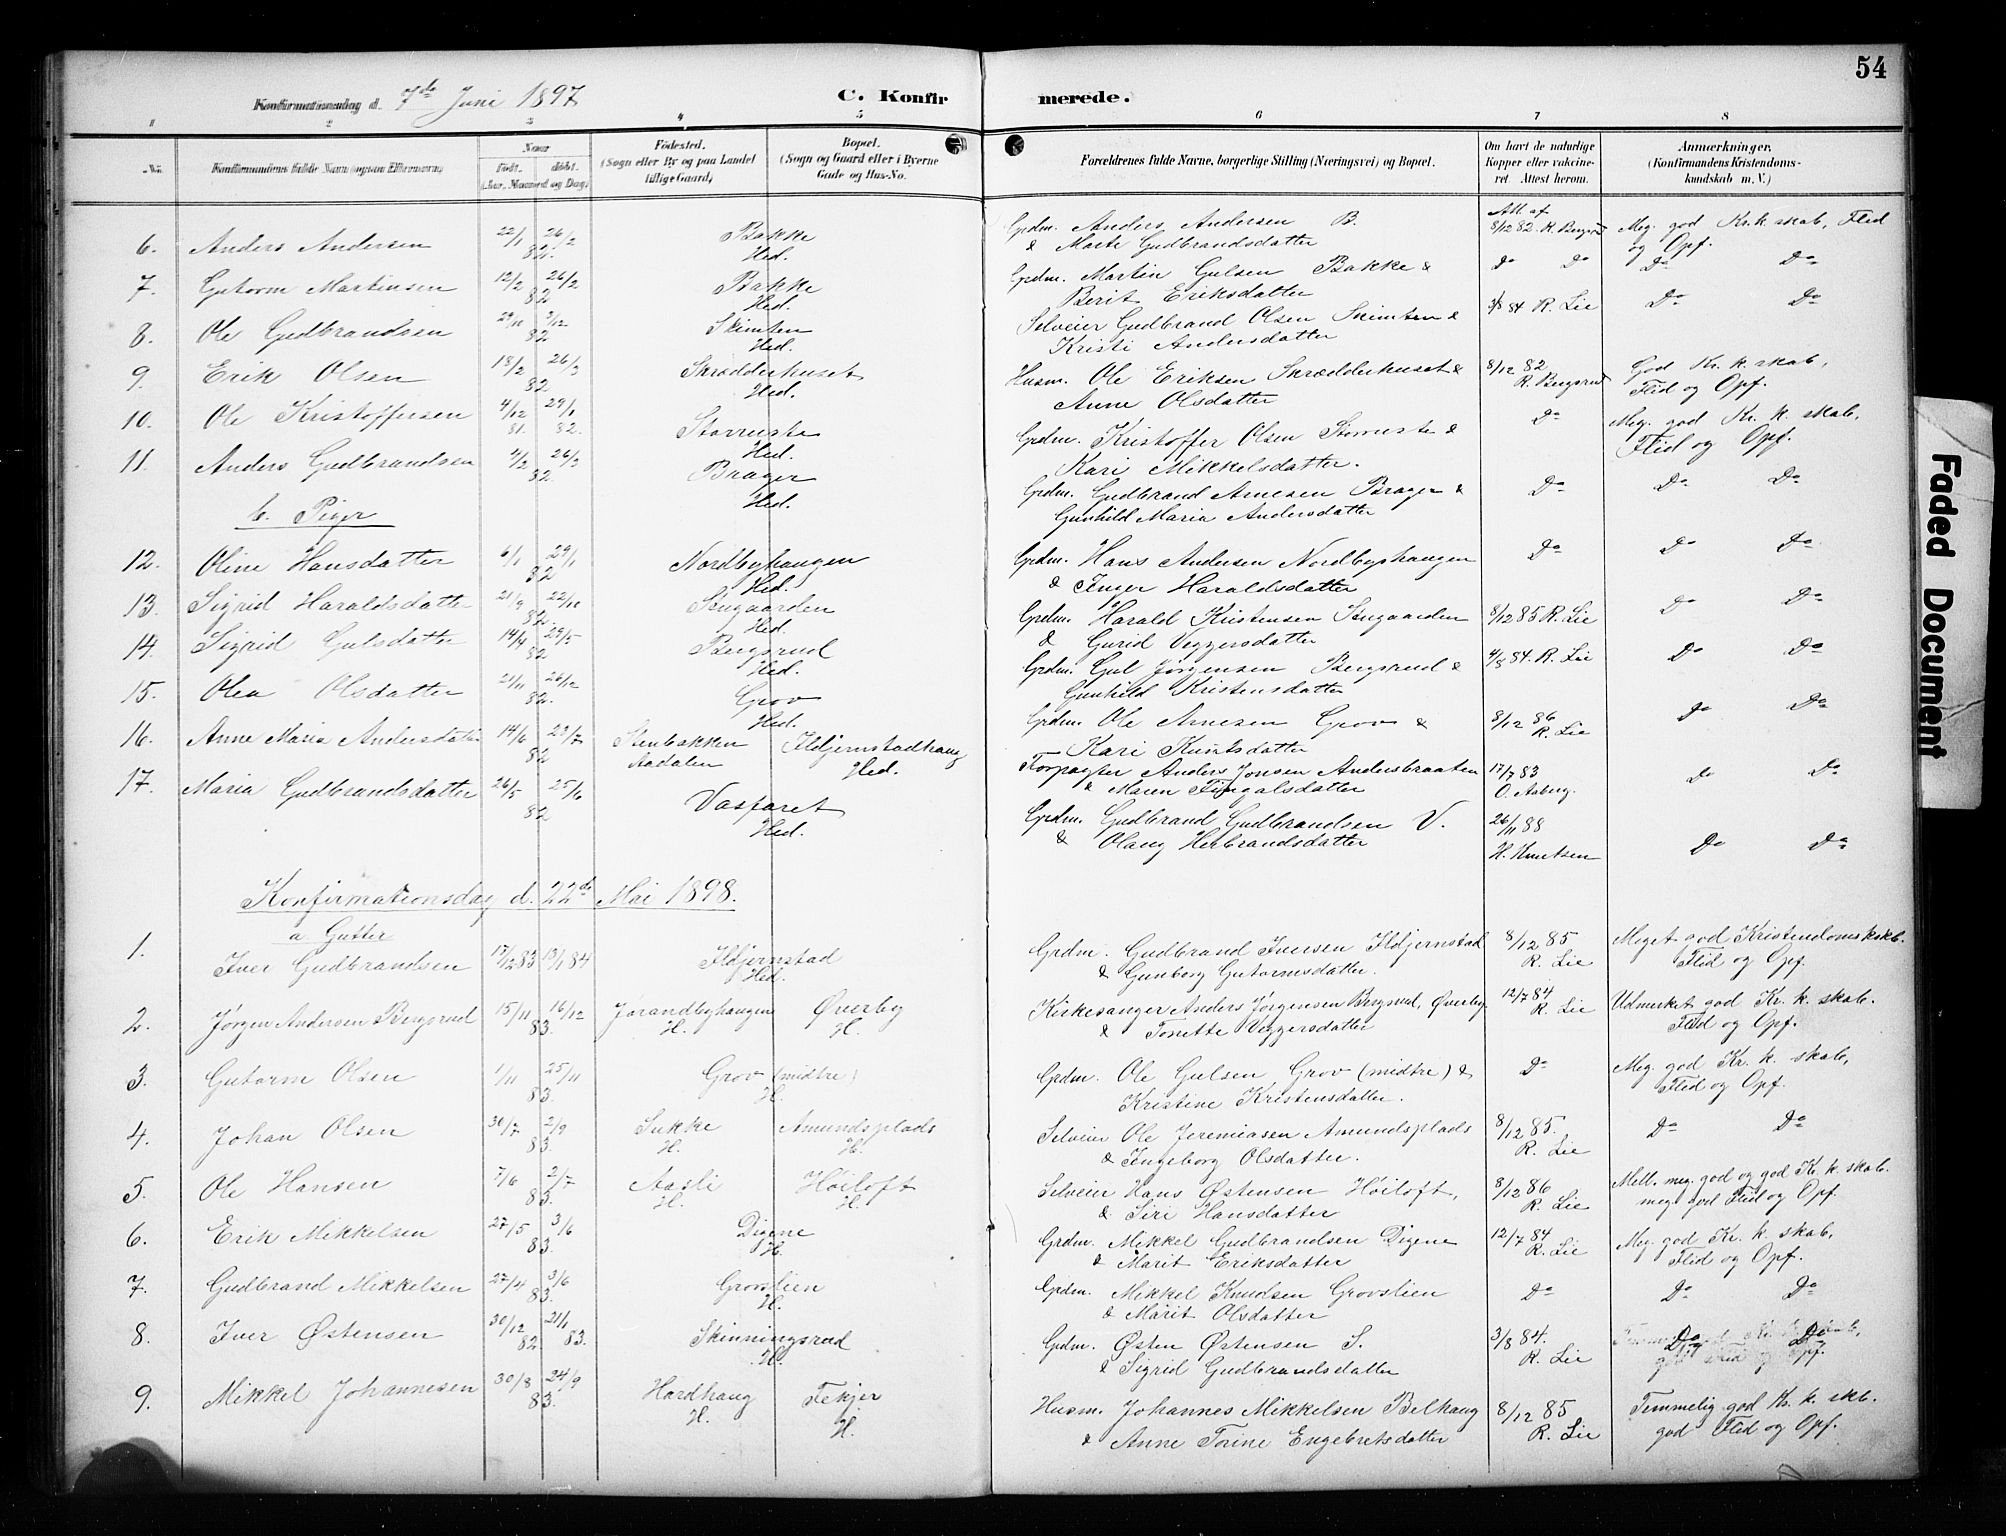 54
Konfirmationsdag d. 7de Juni 1897 C. Konfirmerede.
1 2 3 4 5 6 7 8
No. Konfirmandens fulde Navn (ogsaa Efternavn)
Naar
født. døbt.
(Aar, Maaned og Dag)
Fødested.
(Sogn eller By og paa Landet
tillige Gaard)
Bopæl.
(Sogn og Gaard eller i Byerne
Gade og Hus-No.
Forældrenes fulde Navne, borgerlige Stilling (Næringsvei) og Bopæl.
Om havt de naturlige
Kopper eller vakcine-
ret. Attest herom.
Anmærkninger.
(Konfirmandens Kristendoms-
kundskab m. V.)
6. Anders Andersen 22/1 26/2 82. Bakke Hed. Grdm. Anders Andersen B. Att. af 8/12 82. R. Bergsrud Meg. god Kr. k. skab, Flid
& Marte Gudbrandsdatter og Opf.
7. Gutorm Martinsen 12/2 26/2 82 Bakke Hed. Grdm. Martin Gulsen Bakke & Do Do Do Do
Berit Eriksdatter
8. Ole Gudbrandsen 29/11 82 Skimten Hed. Selveier Gudbrand Olsen Skimten & 84 R. Lie Do Do
Kristi Andersdatter
9. Erik Olsen 18/2 26/3 82 Skrædderhuset Hed. Husm. Ole Eriksen Skrædderhuset & 8/12 82 God Kr. k. skab,
Anne Olsdatter R. Bergsrud Flid og Opf.
10. Ole Kristoffersen 4/12 81. 29/1 82. Storruste Hed. Grdm. Kristoffer Olsen Storruste & Do Meg. god Kr. k. skab,
Kari Mikkelsdatter. Flid og Opf.
11. Anders Gudbrandsen 4/2 26/3 82 Brager Hed. Grdm. Gudbrand Arnesen Brager & Do Do Do
Gunhild Maria Andersdatter
b. Piger
12. Oline Hansdatter 6/1 29/1 82 Nordbyhaugen Hed. Grdm. Hans Andersen Nordbyhaugen Do Do Do
& Inger Haraldsdatter
13. Sigrid Haraldsdatter 21/9 22/10 82. Søngaarden Hed. Grdm. Harald Kristensen Søngaarden 8/12 85 R. Lie Do Do
& Gurid Veggersdatter
14. Sigrid Gulsdatter 14/4 29/5 82 Bergsrud Hed. Grdm. Gul Jørgensen Bergsrud & 4/8 84. R. Lie Do Do
Gunhild Kristensdatter
15. Olea Olsdatter 21/11 26/12 82. Grov Hed. Grdm. Ole Arnesen Grov & 8/12 86 R. Lie Do Do
Kari Knutsdatter
16. Anne Maria Andersdatter 14/6 23/7 82 Stenbakken Aadalen Ildjernstadhaug Hed. Forpagter Anders Jonsen Andersbraaten 17/7 83 Do Do
& Maren Fingalsdatter O. Aaberg.
17. Maria Gudbrandsdatter 26/5 25/6 82 Vasfaret Hed. Grdm. Gudbrand Gudbrandsen V. 26/11 88
& Olaug Herbrandsdatter H. Knutsen Do Do
Konfirmationsdag d. 22de Mai 1898.
a. Gutter
1. Iver Gudbrandsen 17/12 83 13/1 84 Ildjernstad Hed. Grdm. Gudbrand Iversen Ildjernstad 8/12 85 Meget god Kristendomskskb.
& Gunborg Gutormsdatter. R. Lie Flid og Opf.
2. Jørgen Andersen Bergsrud 15/11 16/12 83. Jørandbyhaugen H. Øverby H. Kirkesanger Anders Jørgensen Bergsrud, Øverby 12/7 84 Udmerket god Kr. k. skab.
& Tonette Veggersdatter R. Lie Flid og Opf.
3. Gutorm Olsen 1/11 25/11 83. Grov (midtre) H. Grdm. Ole Gulsen Grov (midtre) & Do Meg. god Kr. k. skab,
Kristine Kristensdatter. Flid og Opf.
4. Johan Olsen 30/7 2/9 83. Sukke H. Amundsplads H. Selveier Ole Jeremiasen Amundsplads 8/12 85. Do Do
& Ingeborg Olsdatter. R. Lie
5. Ole Hansen 7/6 2/7 83. Aasli H. Høiloft H. Selveier Hans Østensen Høiloft, 8/12 86 Mell. meg. god og god Kr. k. skab.
& Siri Hansdatter R. Lie meg. god Flid og Opf.
6. Erik Mikkelsen 27/5 3/6 83. Digene H. Grdm. Mikkel Gudbrandsen Digene 12/7 84 Meg. god Kr. k. skab,
& Marit Eriksdatter R. Lie Flid og Opf.
7. Gudbrand Mikkelsen 27/4 3/6 83. Grovslien H. Grdm. Mikkel Knudsen Grovslien Do Do Do
& Marit Olsdatter
8. Iver Østensen 30/12 82 21/1 83. Skinningsrud H. Grdm. Østen Østensen S. 3/8 84. Do Do
& Sigrid Gudbrandsdatter R. Lie
9. Mikkel Johannesen 30/8 24/9 83. Hardhaug H. Fekjer H. Husm. Johannes Mikkelsen Belhaug 8/12 85 Temmelig god Kr. k. skb.
& Anne Torine Engebretsdatter R. Lie god Flid og Opf.
Faded Document